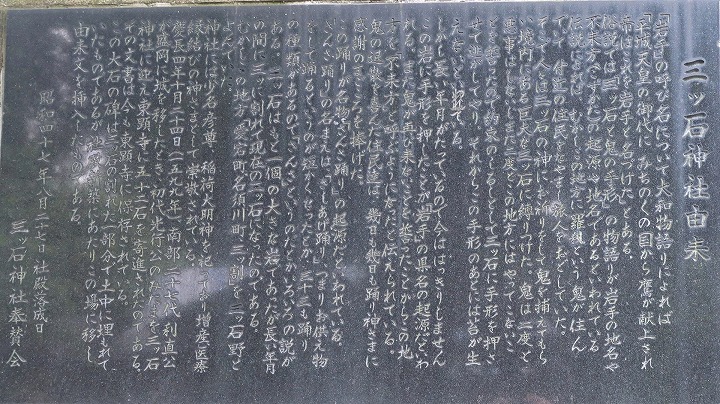 三ッ石神社由来
「岩手の呼び名について大和物語りによれば
「平城天皇の御代に みちのくの国から鷹が献上され
俗説では三ッ石と鬼の手形の物語りが岩手の地名や
不来方(こずかた)の起源や地名であるといわれている
伝説によれば むかしこの地方に羅刹という鬼が住ん
でいて 付近の住民をなやまし旅人をおどしていた
そこで人々は三ッ石の神にお祈りをして鬼を捕えてもら
い境内にある巨大な三ッ石に縛りつけた。鬼は二度と
悪事はしないし、また二度とこの地方にはやってこないこ
とを誓ったので約束のしるしとして三ッ石に手形を押さ
せて逃がしてやり、それからこの手形のあとには苔が生
えないといわれている
しかし長い年月がたっているので今ははっきりしません
この岩に手形を押したことが「岩手」の県名の起源だといわ
れる。また鬼が再び来ないことを誓ったことからこの地
方を「不来方」と呼ぶようになったと伝えられている。
鬼の退散を喜んだ住民達は 幾日も幾日も踊り神さまに
感謝のまごころを捧げた。
この踊りが名物「さんさ踊り」の起源だといわれている。
さんさ踊りの名まえは、「さしあげ踊り」、つまりお供え物
をして踊るというのが短かくせったとか、三十三も踊り
の種類があるので「さんさ」というのだとかいろいろの説が
ある。三ッ石はもと一個の大きな岩であったが長い年月
の間に三つに割れて現在の三ッ石になったのである。
むかしこの地方(愛宕町、名須川町、三ッ割)を三ッ石野と
よんでいた。
神社には少名彦尊、稲荷大明神を祀っており増産医療
縁結びの神さまとして崇敬されている。
慶長四年十月二十四日(一五九九年)南部二十七代 利直公
が盛岡に城を移したとき 初代光行公のみたまを三ッ石
神社に迎え東顕寺に五十二石を寄進されたのである
その文書は今も東顕寺に保存されている。
この大石の碑は三ッ石の割れた一部分で土中に埋もれて
いたものであるが 社殿改築にあたりこの場に移し
由来文を挿入したものである。
昭和四十七年八月二十七日 社殿落成日
三ッ石神社奉賛会